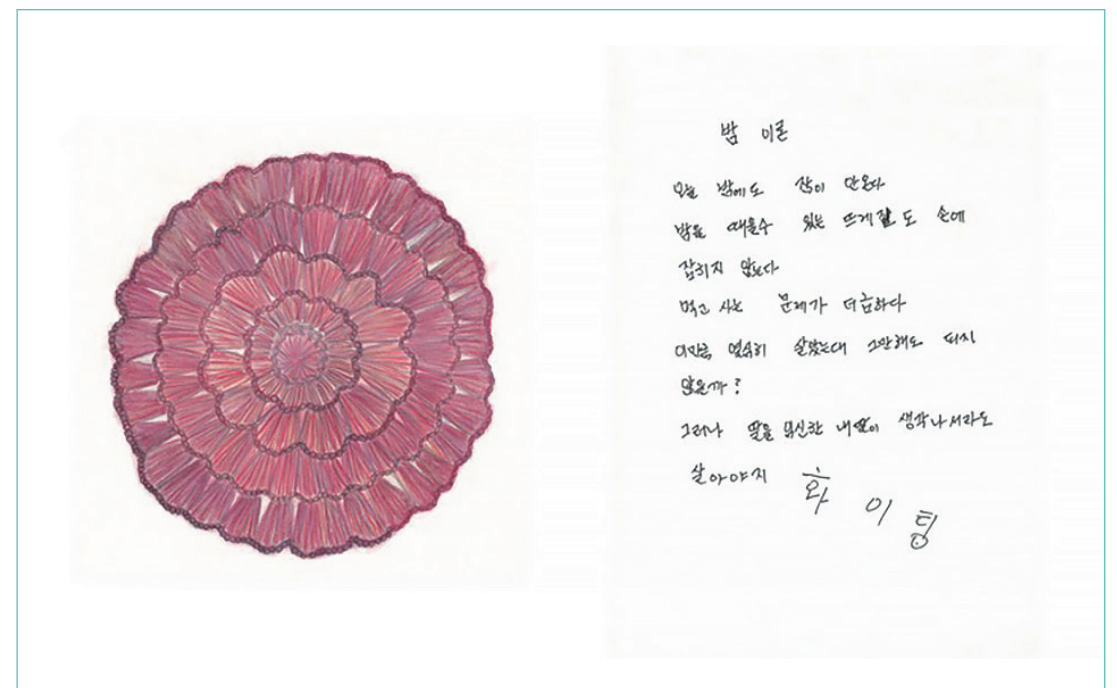 밤 이론
오늘 밤에도 잠이 안온다
밤을 때울수 있는 뜨게질도 손에
잡히지 않는다
먹고 사는 문제가 더 급하다
이만큼 열심히 살았는대 그만해도 되지
않을까?
그러나 딸을 임신한 내딸이 생각나서라도
살아야지 화이팅